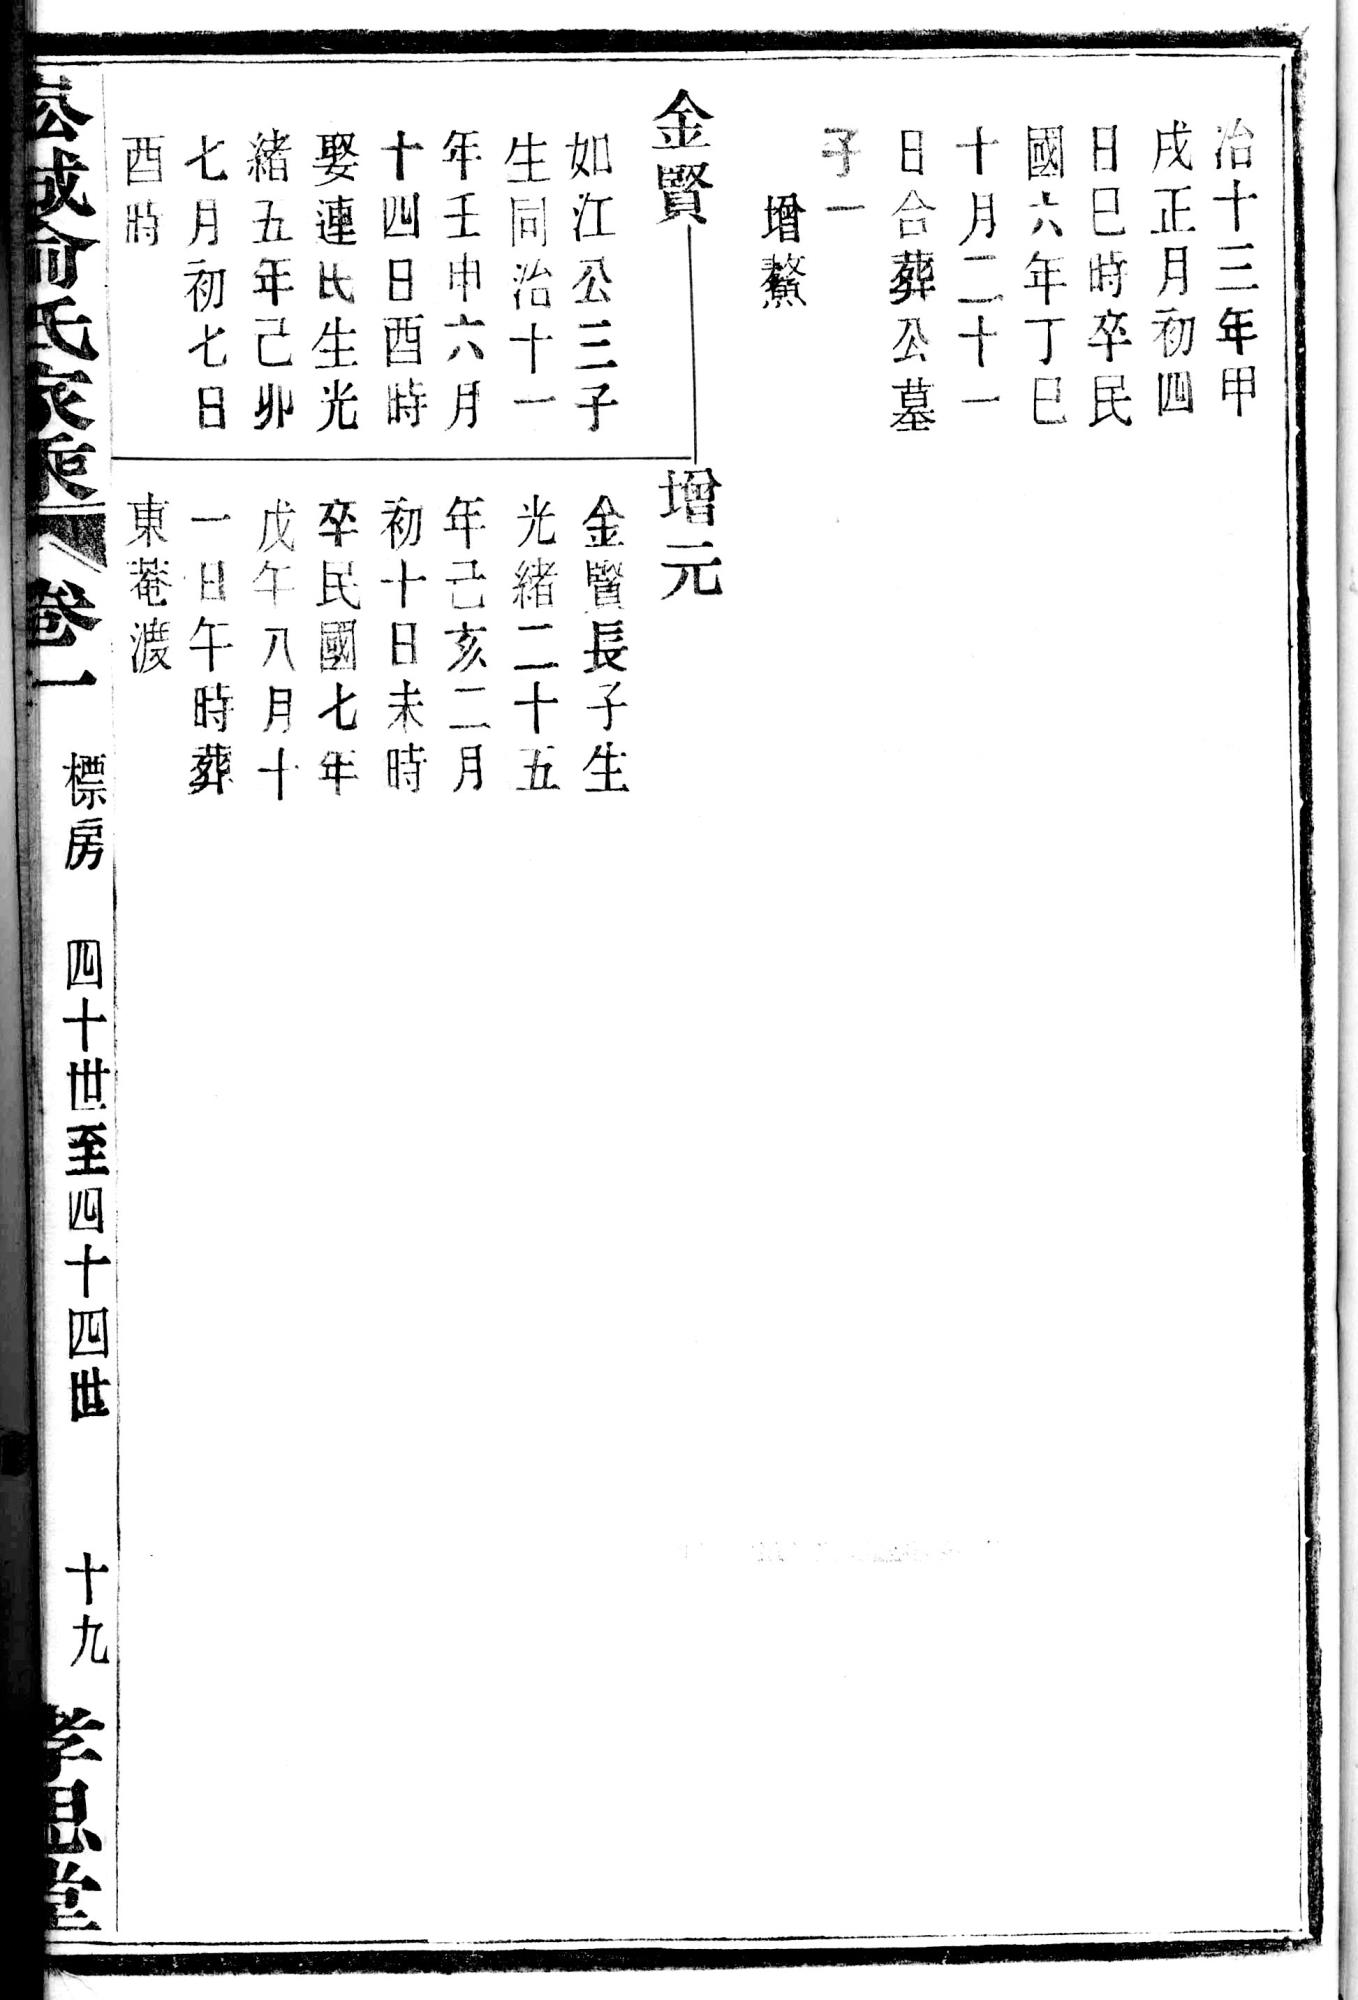 治十三年甲
戌正月初四
日巳時卒民
國六年丁巳
十月二十一
日合葬公墓
子一
增鰲
金賢
如江公三子
生同治十一
年壬申六月
十四日酉時
娶連氏生光
緒五年己卯
七月初七日
酉時
增元
金賢長子生
光緒二十五
年己亥二月
初十日未時
卒民國七年
戊午八月十
一日午時葬
東菴渡
俞氏家乘
卷一
標房
四十世至四十四世
十九
孝思堂